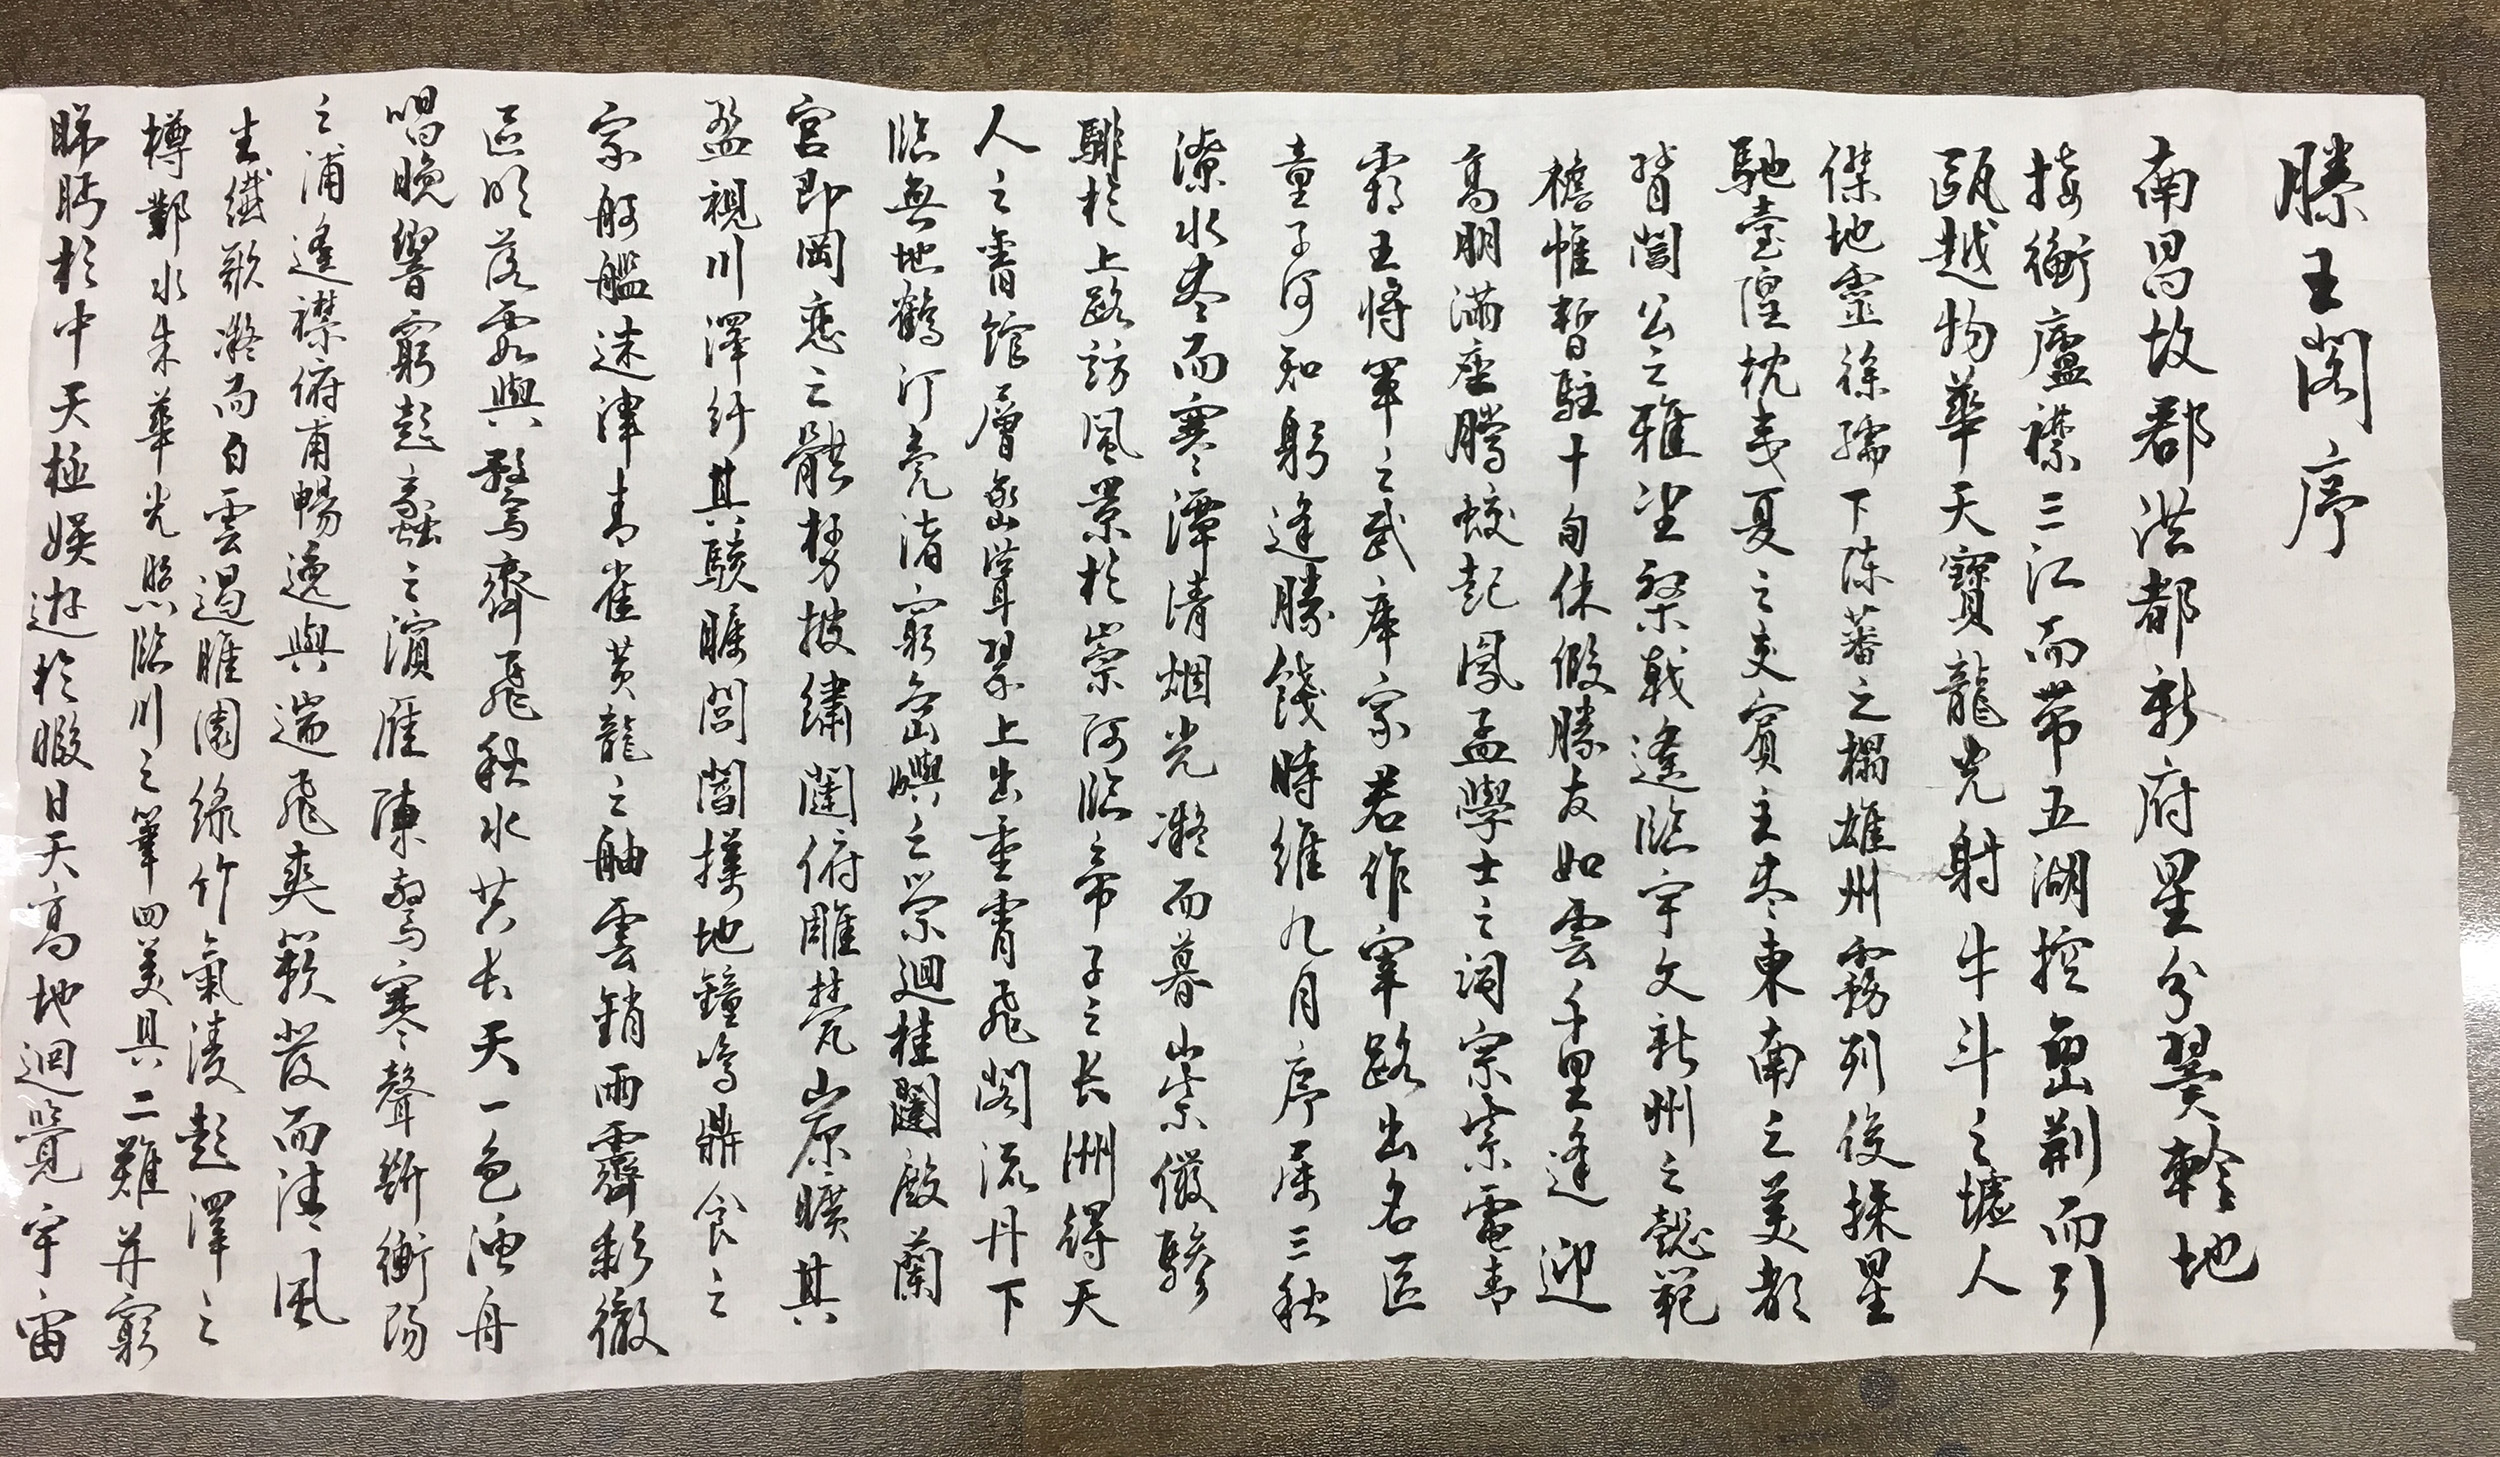 滕王閣序
南昌故郡洪都新府星分翼軫地
接衡廬襟三江而帶五湖控蠻荊而引
甌越物華天寶龍光射牛斗之墟人
傑地靈徐孺下陳蕃之榻雄州霧列俊採星
馳臺隍枕夷夏之交賓主盡東南之美都
督閻公之雅望棨戟遙臨宇文新州之懿範
襜帷暫駐十旬休假勝友如雲千里逢迎
高朋滿座騰蛟起鳳孟學士之詞宗紫電青
霜王將軍之武庫家君作宰路出名區
童子何知躬逢勝餞時維九月序屬三秋
潦水盡而寒潭清烟光凝而暮山紫儼驂
騑於上路訪風景於崇阿臨帝子之長洲得天
人之舊館層巒聳翠上出重霄飛閣流丹下
臨無地鶴汀鳧渚窮島嶼之縈迴桂闥殿蘭
宮即岡巒之體勢披繡闥俯雕甍山原曠其
盈視川澤紆其駭矚閭閻撲地鐘鳴鼎食之
家舸艦迷津青雀黃龍之舳雲銷雨霽彩徹
區明落霞與鶩齊飛秋水共長天一色漁舟
唱晚響窮彭蠡之濱雁陣驚寒聲斷衡陽
之浦遙襟俯甫暢逸興遄飛爽籟發而清風
生纖歌凝而白雲遏睢園綠竹氣凌彭澤之
樽鄴水朱華光照臨川之筆四美具二難并窮
睇眄於中天極娛遊於暇日天高地迥覺宇宙